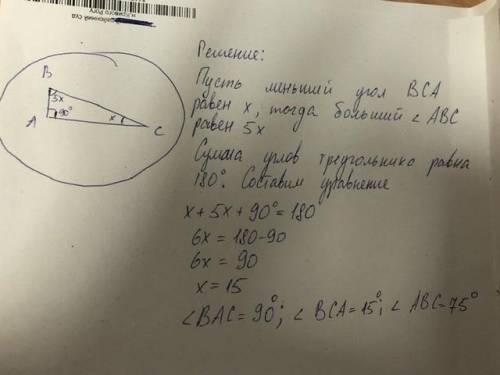 н.Кривого Рогу
районний суд
B
5x
A
90°
x
C
Решение:
Пусть меньший угол BCA
равен x, тогда больший ∠ABC
равен 5x
Сумма углов треугольника равна
180°. Составим уравнение
x + 5x + 90° = 180°
6x = 180-90
6x = 90
x = 15
∠BAC = 90°; ∠BCA = 15°; ∠ABC = 75°